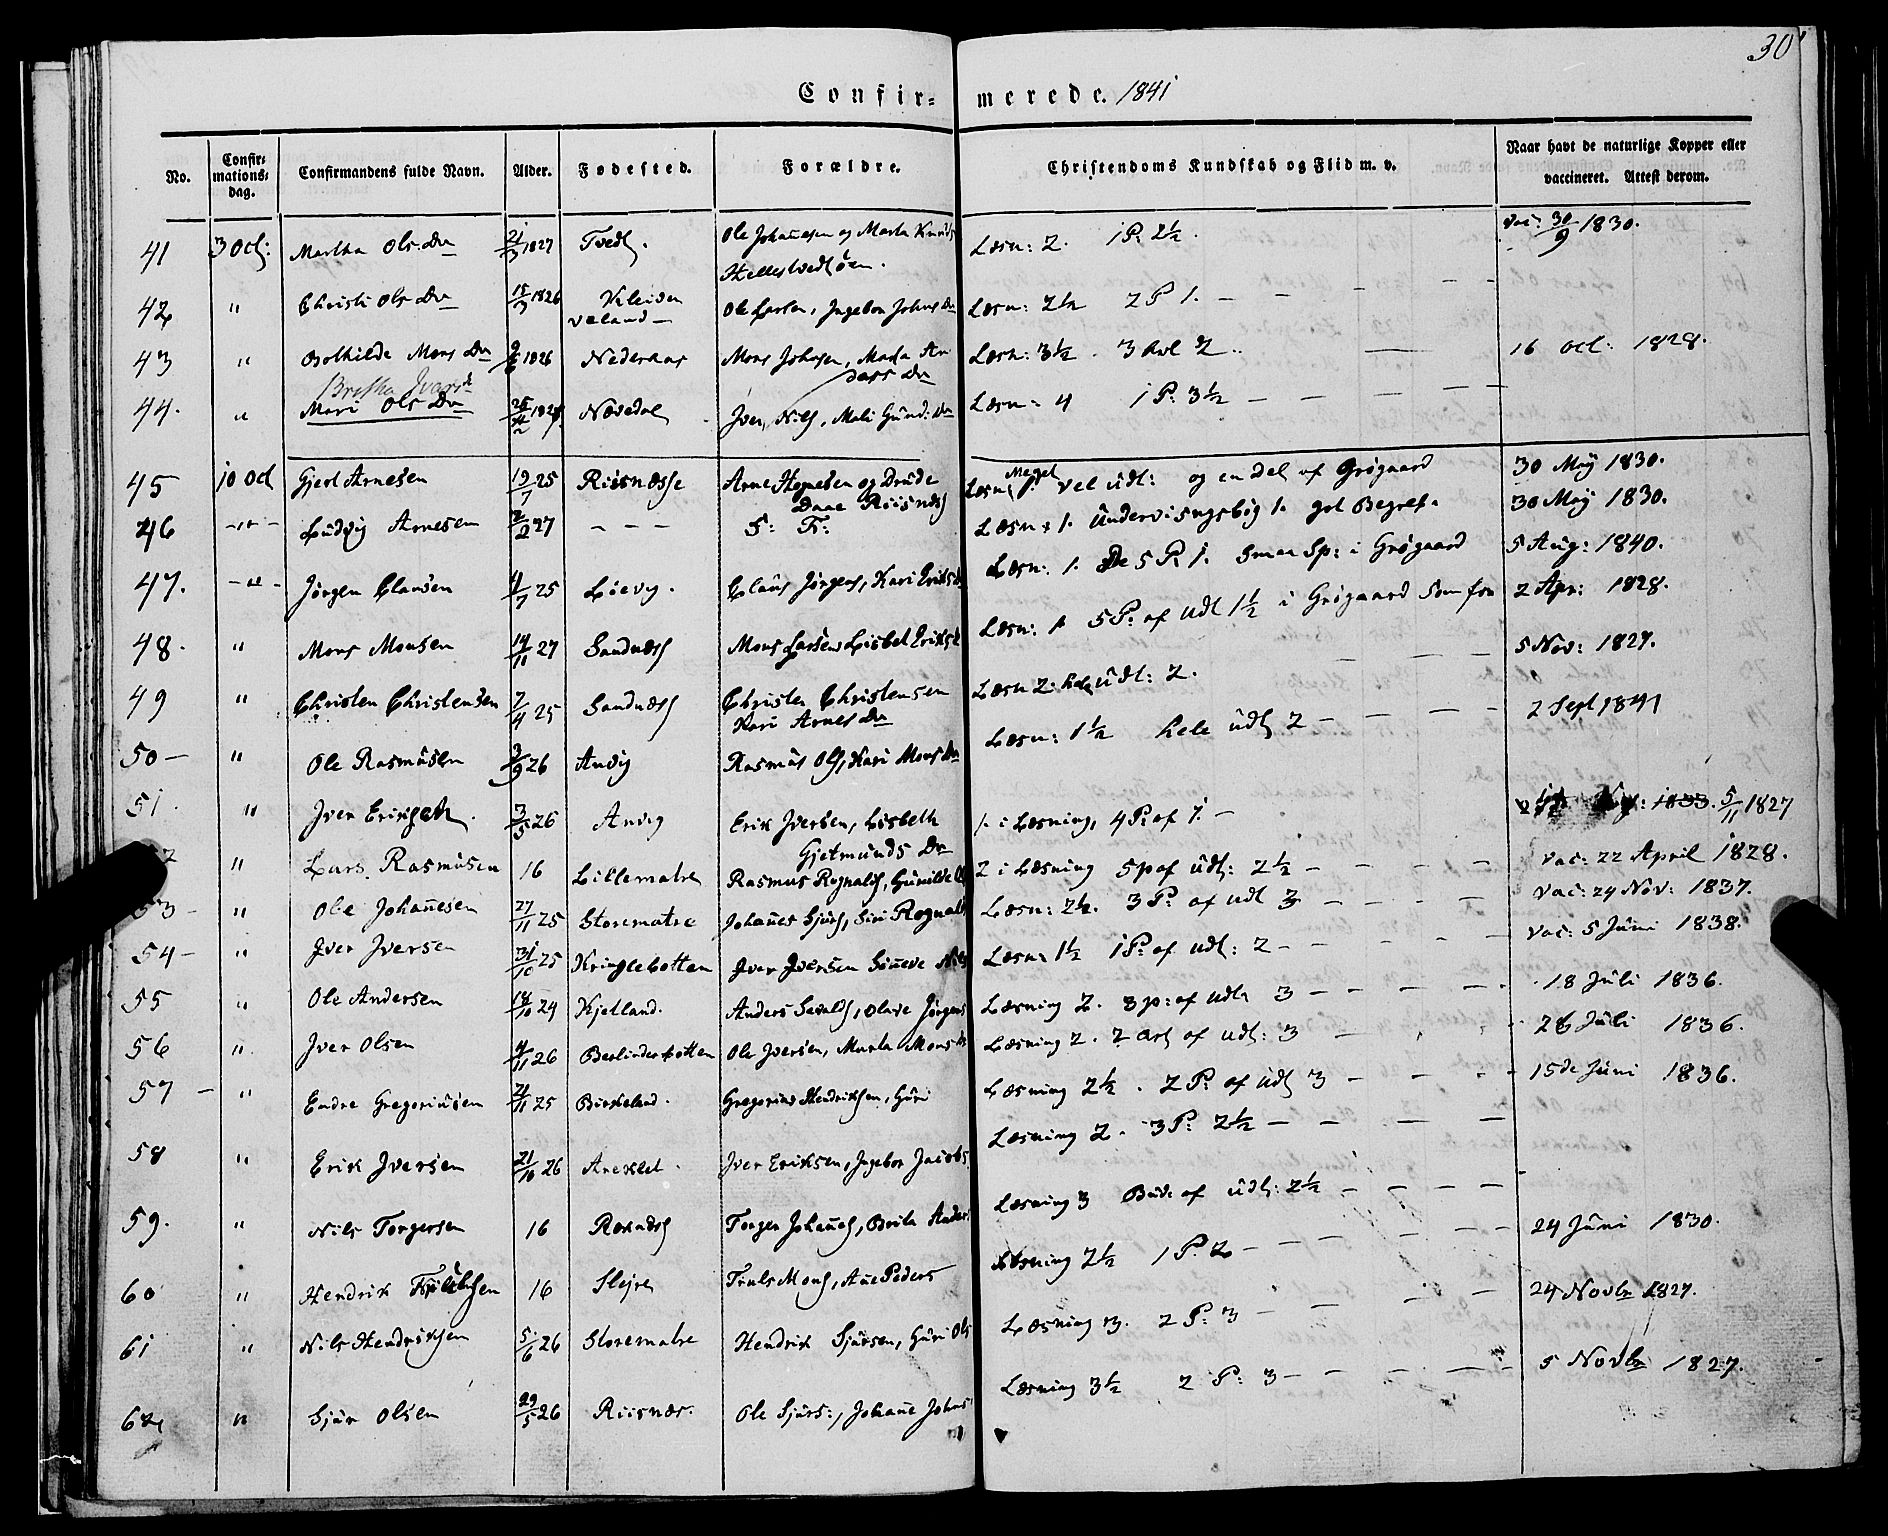 30
Confir- merede. 1841
No. Confir- mations- dag. Confirmandens fulde Navn. Alder. Fødested. Forældre. Christendoms Kundskab og Flid m. v. Naar havt de naturlige Kopper eller vaccineret. Attest derom.
41 3 Oct: Martha Ols Dr 1827 Tvedt. Ole Johañesen og Marta Knuds Læsn: 2. 1 P: 2½. Vac: 30/9 1830.
42 " Christi Ols Dr 15/3 1826 Kleiven Ole Larsen, Ingebor Johns Dr Læsn: 2½ 2 P 1. — —
Veland —
43 " Bothilde Mons Dr 1826 Nederaas Mons Johnsen, Marta An Læsn: 3½. 3 2 .. — 16 Oct: 1828.
ders Dr
Bretha Ivers d
44. " Mari Ols Dr Nævedal Iver Nils, Mali Gund: Dr Læsn: 4 1 P: 3½ — — — —
45 10 Oct Gjert Arnesen 19/7 25 Riisnæsse Arne og Drude Læsn: 1. Meget vel udt: og en Del af Grøgaard 30 May 1830.
Daae Riisnæs
46 - " - Ludvig Arnesen 2/2 27 — — — S: F: Læsn: 1. Undervisngsbog 1. got Begreb. 30 May 1830.
47. - " - Jørgen Clausen 4/7 25 Leevig. Claus Jørgens, Kari Eriks Læsn: 1. De 5 P: 1. Smaa Sp: i Grøgaard 5 Aug: 1840.
48. " Mons Monsen 14/11 27 Sandnæs Mons Larsen Lisbet Eriks Læsn: 1 5 P: af Udt 1½ i Grøgaard Som for 2 Apr: 1828.
49 " Christen Christensen 7/4 25 Sandnæs Christen Christensen Læsn 2. hele udt: 2. 5 Nov: 1827.
Kari Arnes Dr
50 — " Ole Rasmusen 3/9 26 Anvig Rasmus Ols, Kari Mons Dr Læsn: 1½ hele udt 2 — — — — 2 Sept 1841
51. " Iver Eriksen. 3/5 26 Anvig Erik Iversen, Lisbeth 1. i Læsning, 4 P: af 1. — 1833. 5/11 1827
Gjetmunds Dr
2 " Lars Rasmusen 16 Lillematre Rasmus Rognalds, Gunilde 2 i Læsning 5 p af udt: 2½ — — — — Vac: 22 April 1828.
53 — " Ole Johañesen 27/11 25 Storematre Johañes Sjurs, Siri Rognalds Læsn: 2½. 3 P: af udt 3 — — — — Vac: 24 Nov: 1837.
54 — " Iver Iversen 31/10 25 Kringlebotten Iver Iversen Siñeve Nils Læsn: 1½ 1 P: af udt: 2 — — — — Vac: 5 Juni 1838.
55 " Ole Andersen 18/10 24 Kjetland. Anders Sevalds, Olave Jørgens Læsning 2. 3 p: af udt: 3 — — — — 18 Juli 1836.
56 " Iver Olsen 4/11 26 Ole Iversen, Marta Mons Læsning 2. 2 Art af udt: 3 — 26 Juli 1836.
57 — " Endre Gregoriusen 21/11 25 Birkeland. Gregorius Hendriksen, Guri Læsning 2½. 2 P: af udt 3 — — — 15de Juni 1836.
58 " Erik Iversen 21/10 26 Areklet. Iver Eriksen, Ingebor Jacobs Læsning 2. 3 P: 2½ — — — —
59. " Nils Torgersen 16 Roknæs Torger Johañes, Brita Anders Læsning 3 Bud: af udt: 2½ — — — —
60 " Hendrik 16 Slejre Truls Mons, Añe Peders Læsning 2½ 1 P: 2 — — — — 24 Juni 1830.
61 " Nils Hendriksen 5/6 26 Storematre Hendrik Sjursen, Guri Ols Læsning 3. 2 P: 3 — — — — 24 Novbr 1827.
62 " Sjur Olsen 29/5 26 Riisnæs. Ole Sjurs:, Johañe Johns Læsning 3½ 2 P: 3 — — — — 5 Novbr 1827.